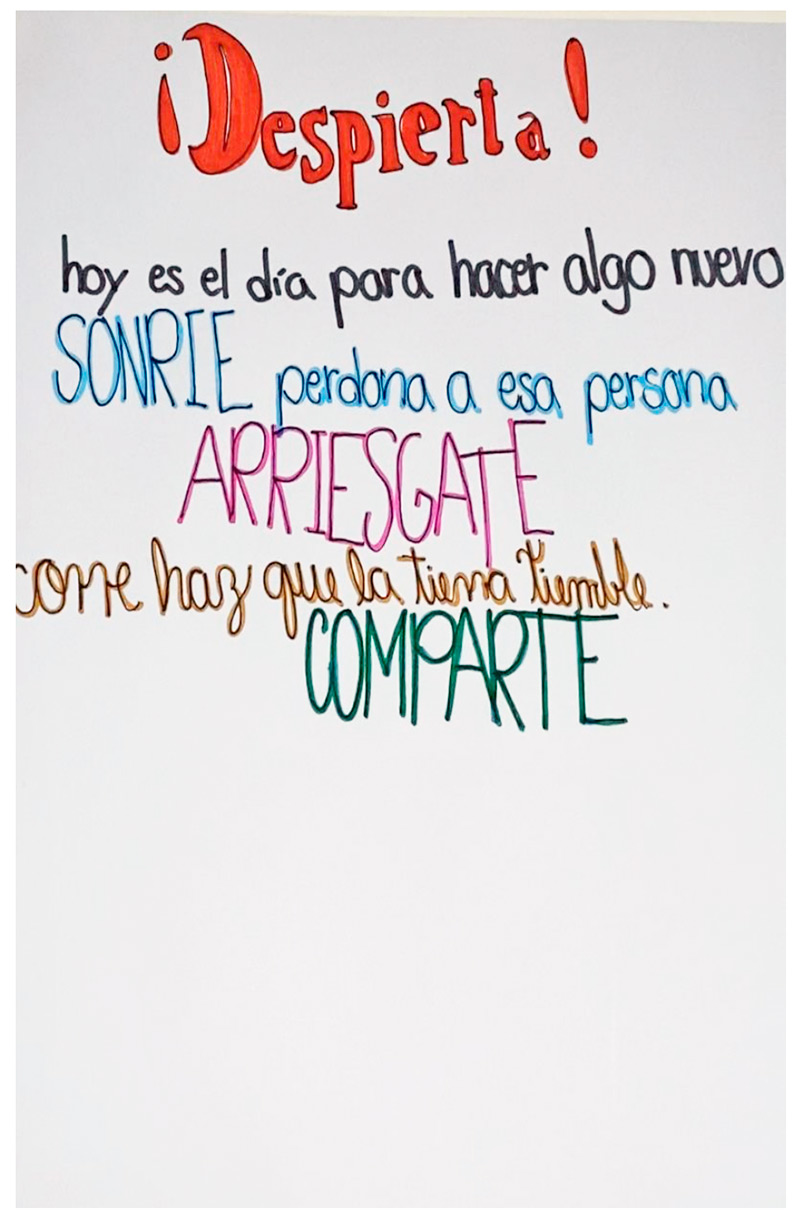 ¡Despierta!
hoy es el día para hacer algo nuevo
SONRIE perdona a esa persona
ARRIESGATE
corre haz que la tierra tiemble.
COMPARTE